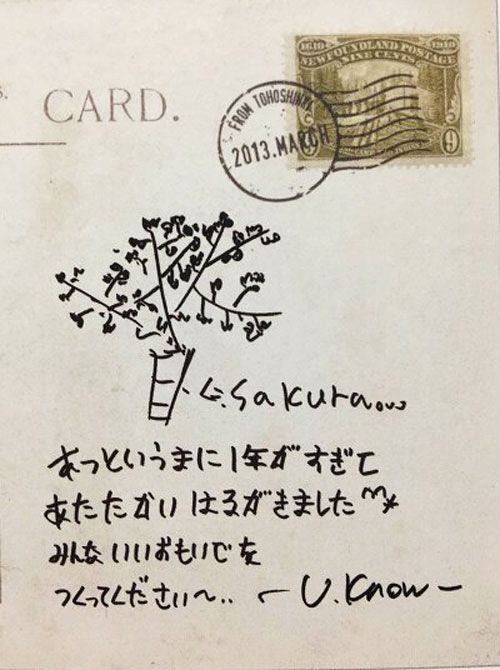 S.
CARD.
1610 1910
NEWFOUNDLAND POSTAGE
NINE CENTS
9 9
FROM TOHOSHINKI
2013.MARCH
⇐ sakura...
あっというまに1年がすぎて
あたたかいはるがきました
みんないいおもいでを
つくってください〜..
ー U.Know ー